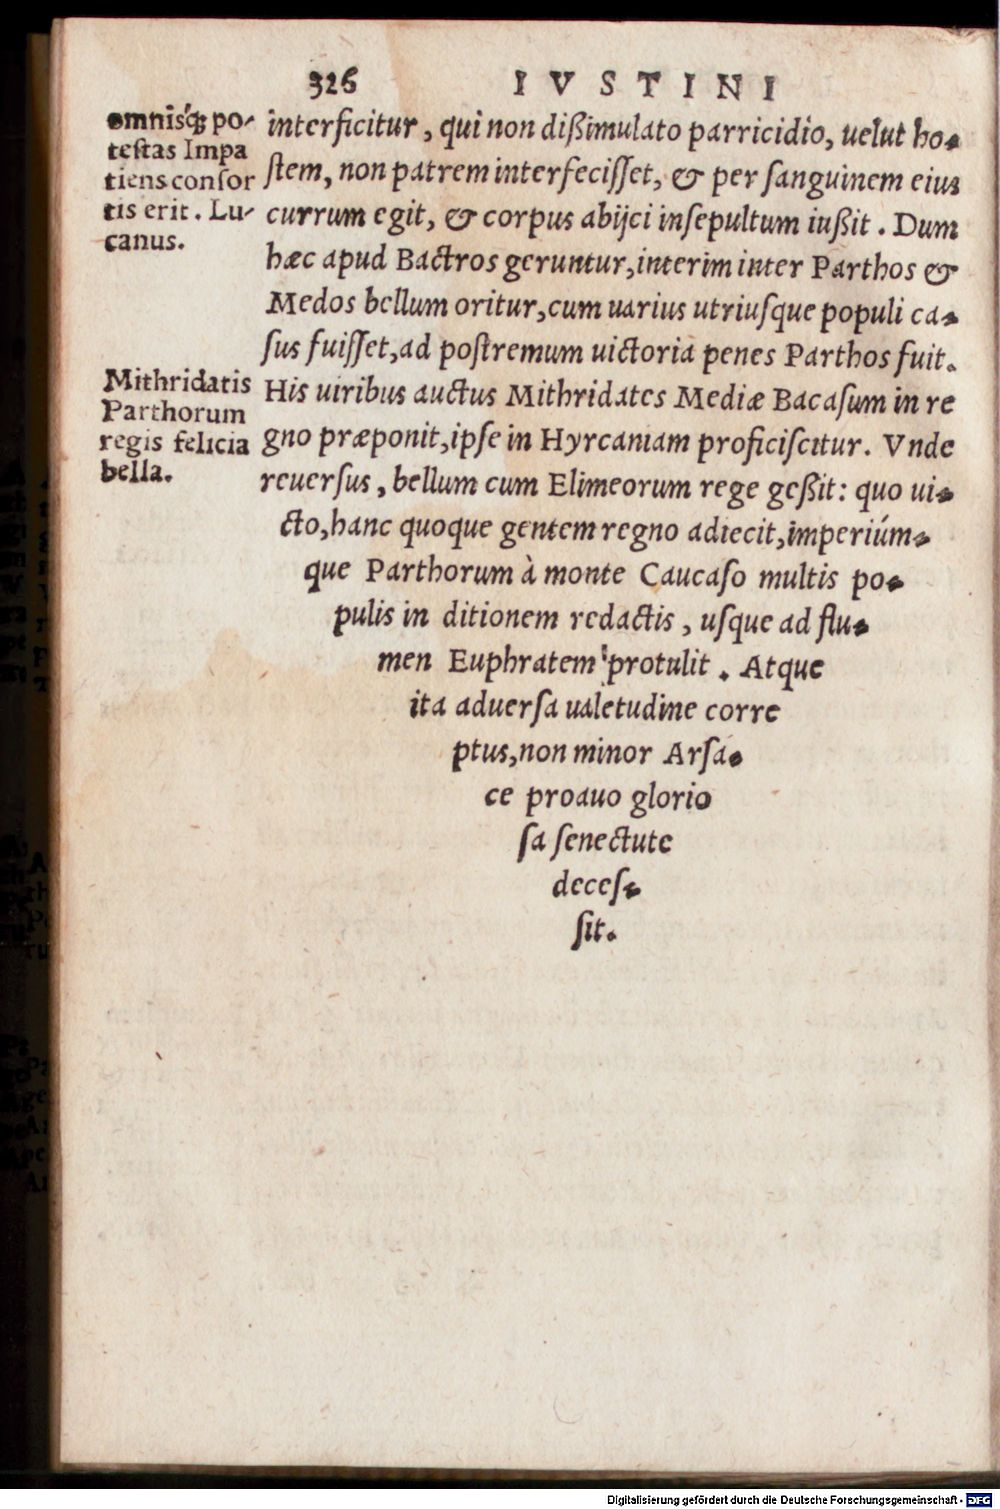 326 IVSTINI
omnisq́ꝫ po-
testas Impa
tiens consor
tis erit. Lu-
canus.
Mithridatis
Parthorum
regis felicia
bella.
interficitur, qui non dißimulato parricidio, uelut ho-
stem, non patrem interfecisset, & per sanguinem eius
currum egit, & corpus abijci insepultum iußit. Dum
hæc apud Bactros geruntur, interim inter Parthos &
Medos bellum oritur, cum uarius utriusque populi ca-
sus fuisset, ad postremum uictoria penes Parthos fuit.
His uiribus auctus Mithridates Mediæ Bacasum in re
gno præponit, ipse in Hyrcaniam proficiscitur. Vnde
reuersus, bellum cum Elimeorum rege geßit: quo ui-
cto, hanc quoque gentem regno adiecit, imperiúm-
que Parthorum à monte Caucaso multis po-
pulis in ditionem redactis, usque ad flu-
men Euphratem protulit. Atque
ita aduersa ualetudine corre
ptus, non minor Arsa-
ce proauo glorio
sa senectute
deces-
sit.
Digitalisierung gefördert durch die Deutsche Forschungsgemeinschaft - DFG